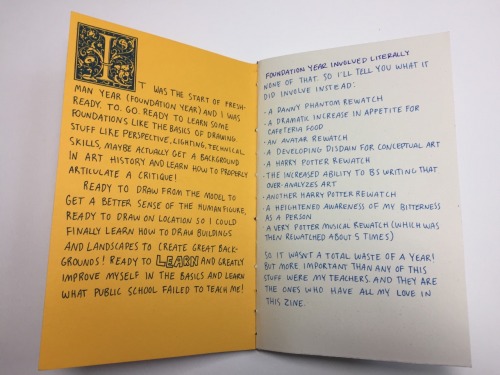 IT WAS THE START OF FRESH-
MAN YEAR (FOUNDATION YEAR) AND I WAS
READY. TO. GO. READY TO LEARN SOME
FOUNDATIONS LIKE THE BASICS OF DRAWING
STUFF LIKE PERSPECTIVE, LIGHTING, TECHNICAL
SKILLS, MAYBE ACTUALLY GET A BACKGROUND
IN ART HISTORY AND LEARN HOW TO PROPERLY
ARTICULATE A CRITIQUE!
READY TO DRAW FROM THE MODEL TO
GET A BETTER SENSE OF THE HUMAN FIGURE,
READY TO DRAW ON LOCATION SO I COULD
FINALLY LEARN HOW TO DRAW BUILDINGS
AND LANDSCAPES TO CREATE GREAT BACK-
GROUNDS! READY TO LEARN AND GREATLY
IMPROVE MYSELF IN THE BASICS AND LEARN
WHAT PUBLIC SCHOOL FAILED TO TEACH ME!
FOUNDATION YEAR INVOLVED LITERALLY
NONE OF THAT. SO I'LL TELL YOU WHAT IT
DID INVOLVE INSTEAD:
· A DANNY PHANTOM REWATCH
· A DRAMATIC INCREASE IN APPETITE FOR
CAFETERIA FOOD
· AN AVATAR REWATCH
· A DEVELOPING DISDAIN FOR CONCEPTUAL ART
· A HARRY POTTER REWATCH
· THE INCREASED ABILITY TO BS WRITING THAT
OVER-ANALYZES ART
· ANOTHER HARRY POTTER REWATCH
· A HEIGHTENED AWARENESS OF MY BITTERNESS
AS A PERSON
· A VERY POTTER MUSICAL REWATCH (WHICH WAS
THEN REWATCHED ABOUT 5 TIMES)
SO IT WASNT A TOTAL WASTE OF A YEAR!
BUT MORE IMPORTANT THAN ANY OF THIS
STUFF WERE MY TEACHERS. AND THEY ARE
THE ONES WHO HAVE ALL MY LOVE IN
THIS ZINE.